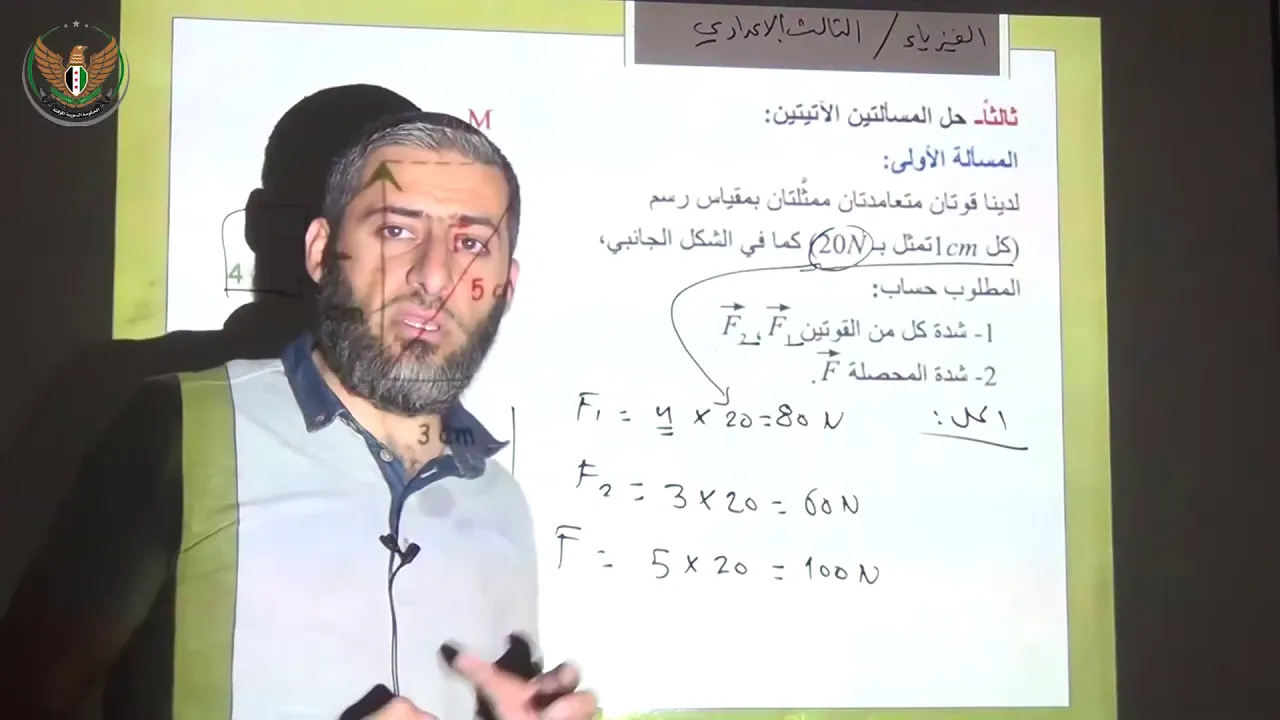 الفيزياء / الثالث الإعدادي
ثالثاً- حل المسألتين الآتيتين:
المسألة الأولى:
لدينا قوتان متعامدتان ممثَّلتان بمقياس رسم
(كل 1cm تمثل بـ 20N) كما في الشكل الجانبي،
المطلوب حساب:
1- شدة كل من القوتين F₁ ، F₂
2- شدة المحصلة F .
الحل:
F₁ = 4 × 20 = 80 N
F₂ = 3 × 20 = 60 N
F = 5 × 20 = 100 N
M
4
5
3 cm